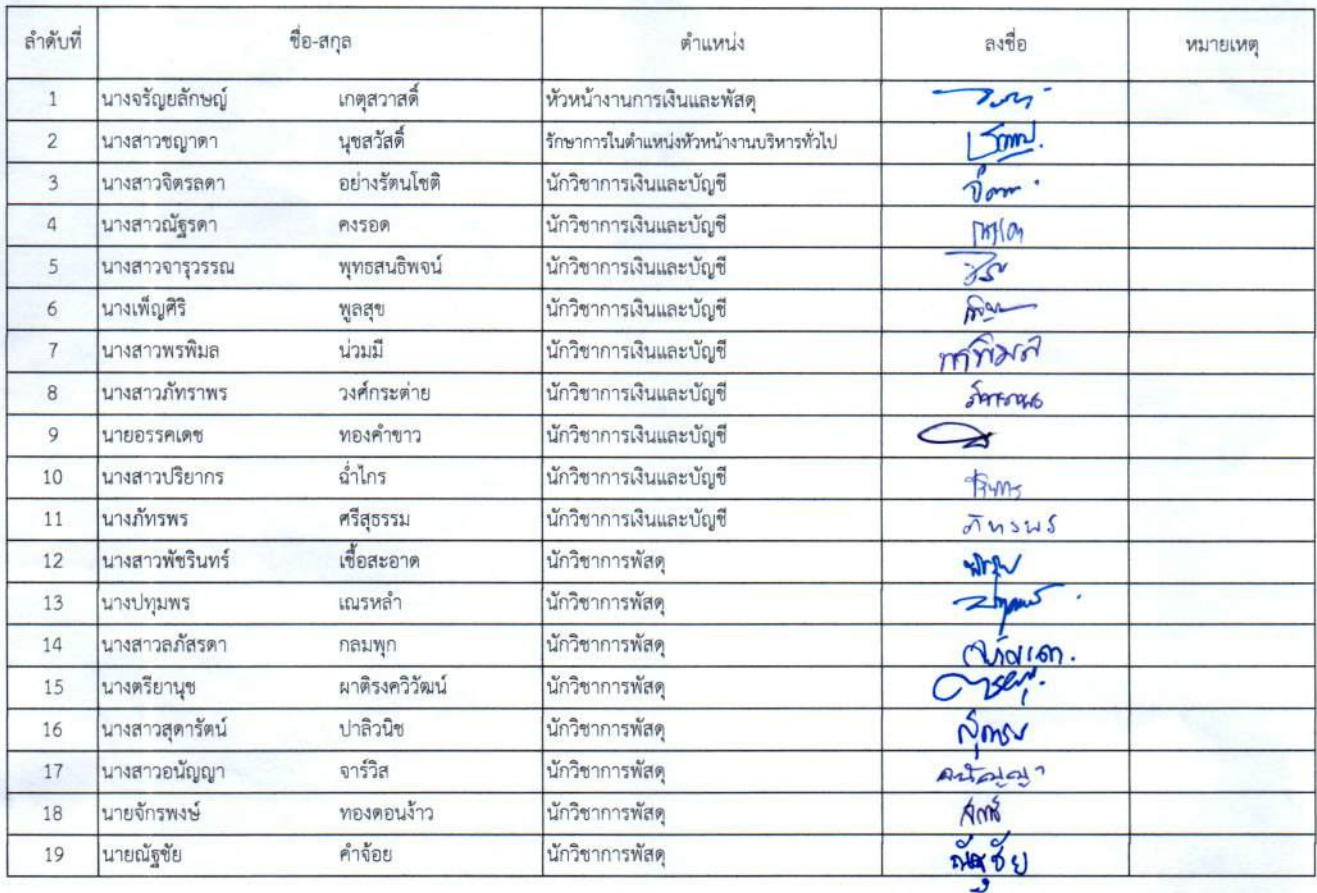 ลำดับที่ ชื่อ-สกุล ตำแหน่ง ลงชื่อ หมายเหตุ
1 นางจรัญยลักษญ์ เกตุสวาสดิ์ หัวหน้างานการเงินและพัสดุ
2 นางสาวชญาดา นุชสวัสดิ์ รักษาการในตำแหน่งหัวหน้างานบริหารทั่วไป
3 นางสาวจิตรลดา อย่างรัตนโชติ นักวิชาการเงินและบัญชี
4 นางสาวณัฐรดา คงรอด นักวิชาการเงินและบัญชี
5 นางสาวจารุวรรณ พุทธสนธิพจน์ นักวิชาการเงินและบัญชี
6 นางเพ็ญศิริ พูลสุข นักวิชาการเงินและบัญชี
7 นางสาวพรพิมล น่วมมี นักวิชาการเงินและบัญชี
8 นางสาวภัทราพร วงศ์กระต่าย นักวิชาการเงินและบัญชี
9 นายอรรคเดช ทองคำขาว นักวิชาการเงินและบัญชี
10 นางสาวปริยากร ฉ่ำไกร นักวิชาการเงินและบัญชี
11 นางภัทรพร ศรีสุธรรม นักวิชาการเงินและบัญชี ภัทรพร
12 นางสาวพัชรินทร์ เชื้อสะอาด นักวิชาการพัสดุ
13 นางปทุมพร เณรหลำ นักวิชาการพัสดุ
14 นางสาวลภัสรดา กลมพุก นักวิชาการพัสดุ
15 นางตรียานุช ผาติรงควิวัฒน์ นักวิชาการพัสดุ
16 นางสาวสุดารัตน์ ปาลิวนิช นักวิชาการพัสดุ
17 นางสาวอนัญญา จาร์วิส นักวิชาการพัสดุ อนัญญา
18 นายจักรพงษ์ ทองดอนง้าว นักวิชาการพัสดุ
19 นายณัฐชัย คำจ้อย นักวิชาการพัสดุ ณัฐชัย